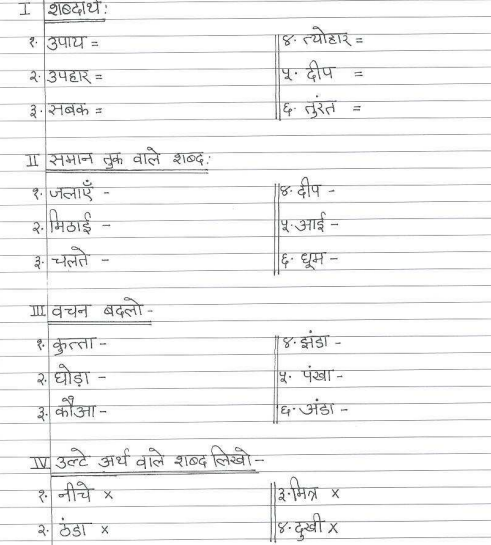 I शब्दार्थ:
१. उपाय =
४. त्योहार =
२. उपहार =
५. दीप =
३. सबक =
६. तुरंत =
II समान तुक वाले शब्द:
१. जलाएँ -
४. दीप -
२. मिठाई -
५. आई -
३. चलते -
६. धूम -
III वचन बदलो -
१. कुत्ता -
४. झंडा -
२. घोड़ा -
५. पंखा -
३. कौआ -
६. अंडा -
IV उल्टे अर्थ वाले शब्द लिखो -
१. नीचे ×
३. मित्र ×
२. ठंडा ×
४. दुखी ×